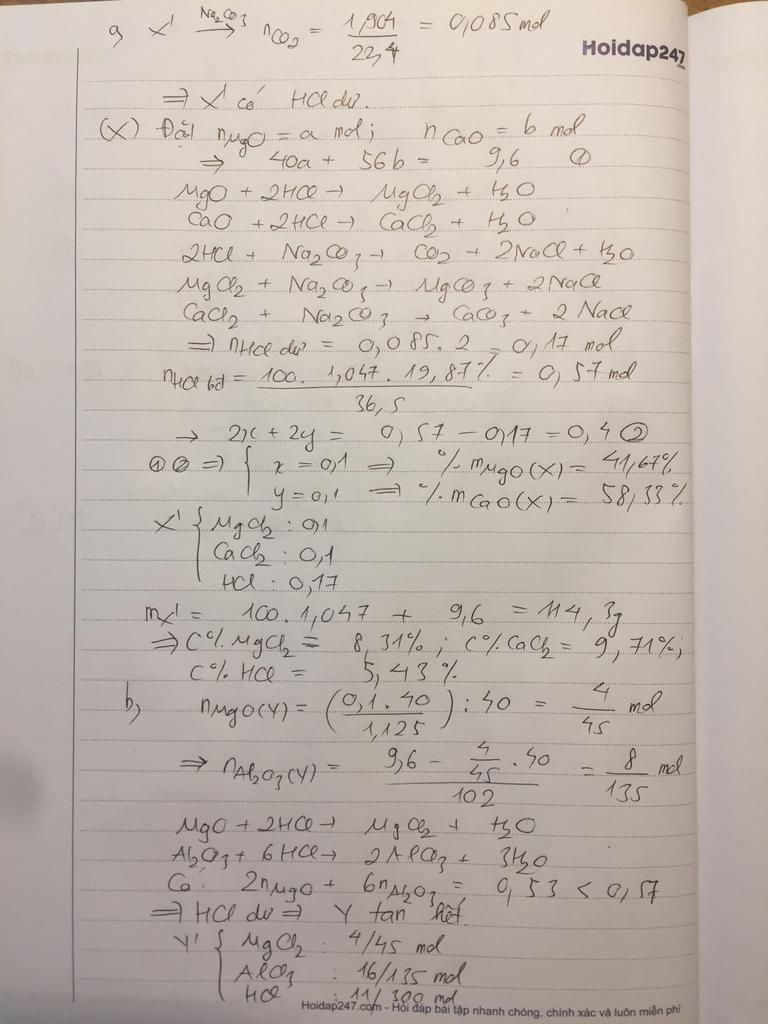 a, X' Na₂CO₃ → nCO₂ = 1,904 / 22,4 = 0,085 mol
Hoidap247.com
⇒ X' có HCl dư.
(X) Đặt nMgO = a mol; nCaO = b mol
⇒ 40a + 56b = 9,6 ①
MgO + 2HCl → MgCl₂ + H₂O
CaO + 2HCl → CaCl₂ + H₂O
2HCl + Na₂CO₃ → CO₂ + 2NaCl + H₂O
MgCl₂ + Na₂CO₃ → MgCO₃ + 2NaCl
CaCl₂ + Na₂CO₃ → CaCO₃ + 2NaCl
⇒ nHCl dư = 0,085.2 = 0,17 mol
nHCl bđ = 100.1,047.19,87% / 36,5 = 0,57 mol
→ 2x + 2y = 0,57 – 0,17 = 0,4 ②
①② ⇒ { x = 0,1 ⇒ %mMgO(X) = 41,67%
y = 0,1 ⇒ %mCaO(X) = 58,33%
X' { MgCl₂ : 0,1
CaCl₂ : 0,1
HCl : 0,17
mX' = 100.1,047 + 9,6 = 114,3g
⇒ C% MgCl₂ = 8,31%; C% CaCl₂ = 9,71%;
C% HCl = 5,43%
b, nMgO(Y) = (0,1.40 / 1,125) : 40 = 4/45 mol
⇒ nAl₂O₃(Y) = (9,6 - 4/45 . 40) / 102 = 8/135 mol
MgO + 2HCl → MgCl₂ + H₂O
Al₂O₃ + 6HCl → 2AlCl₃ + 3H₂O
Có: 2nMgO + 6nAl₂O₃ = 0,53 < 0,57
⇒ HCl dư ⇒ Y tan hết.
Y' { MgCl₂ : 4/45 mol
AlCl₃ : 16/135 mol
HCl : 11/300 mol
Hoidap247.com - Hỏi đáp bài tập nhanh chóng, chính xác và luôn miễn phí